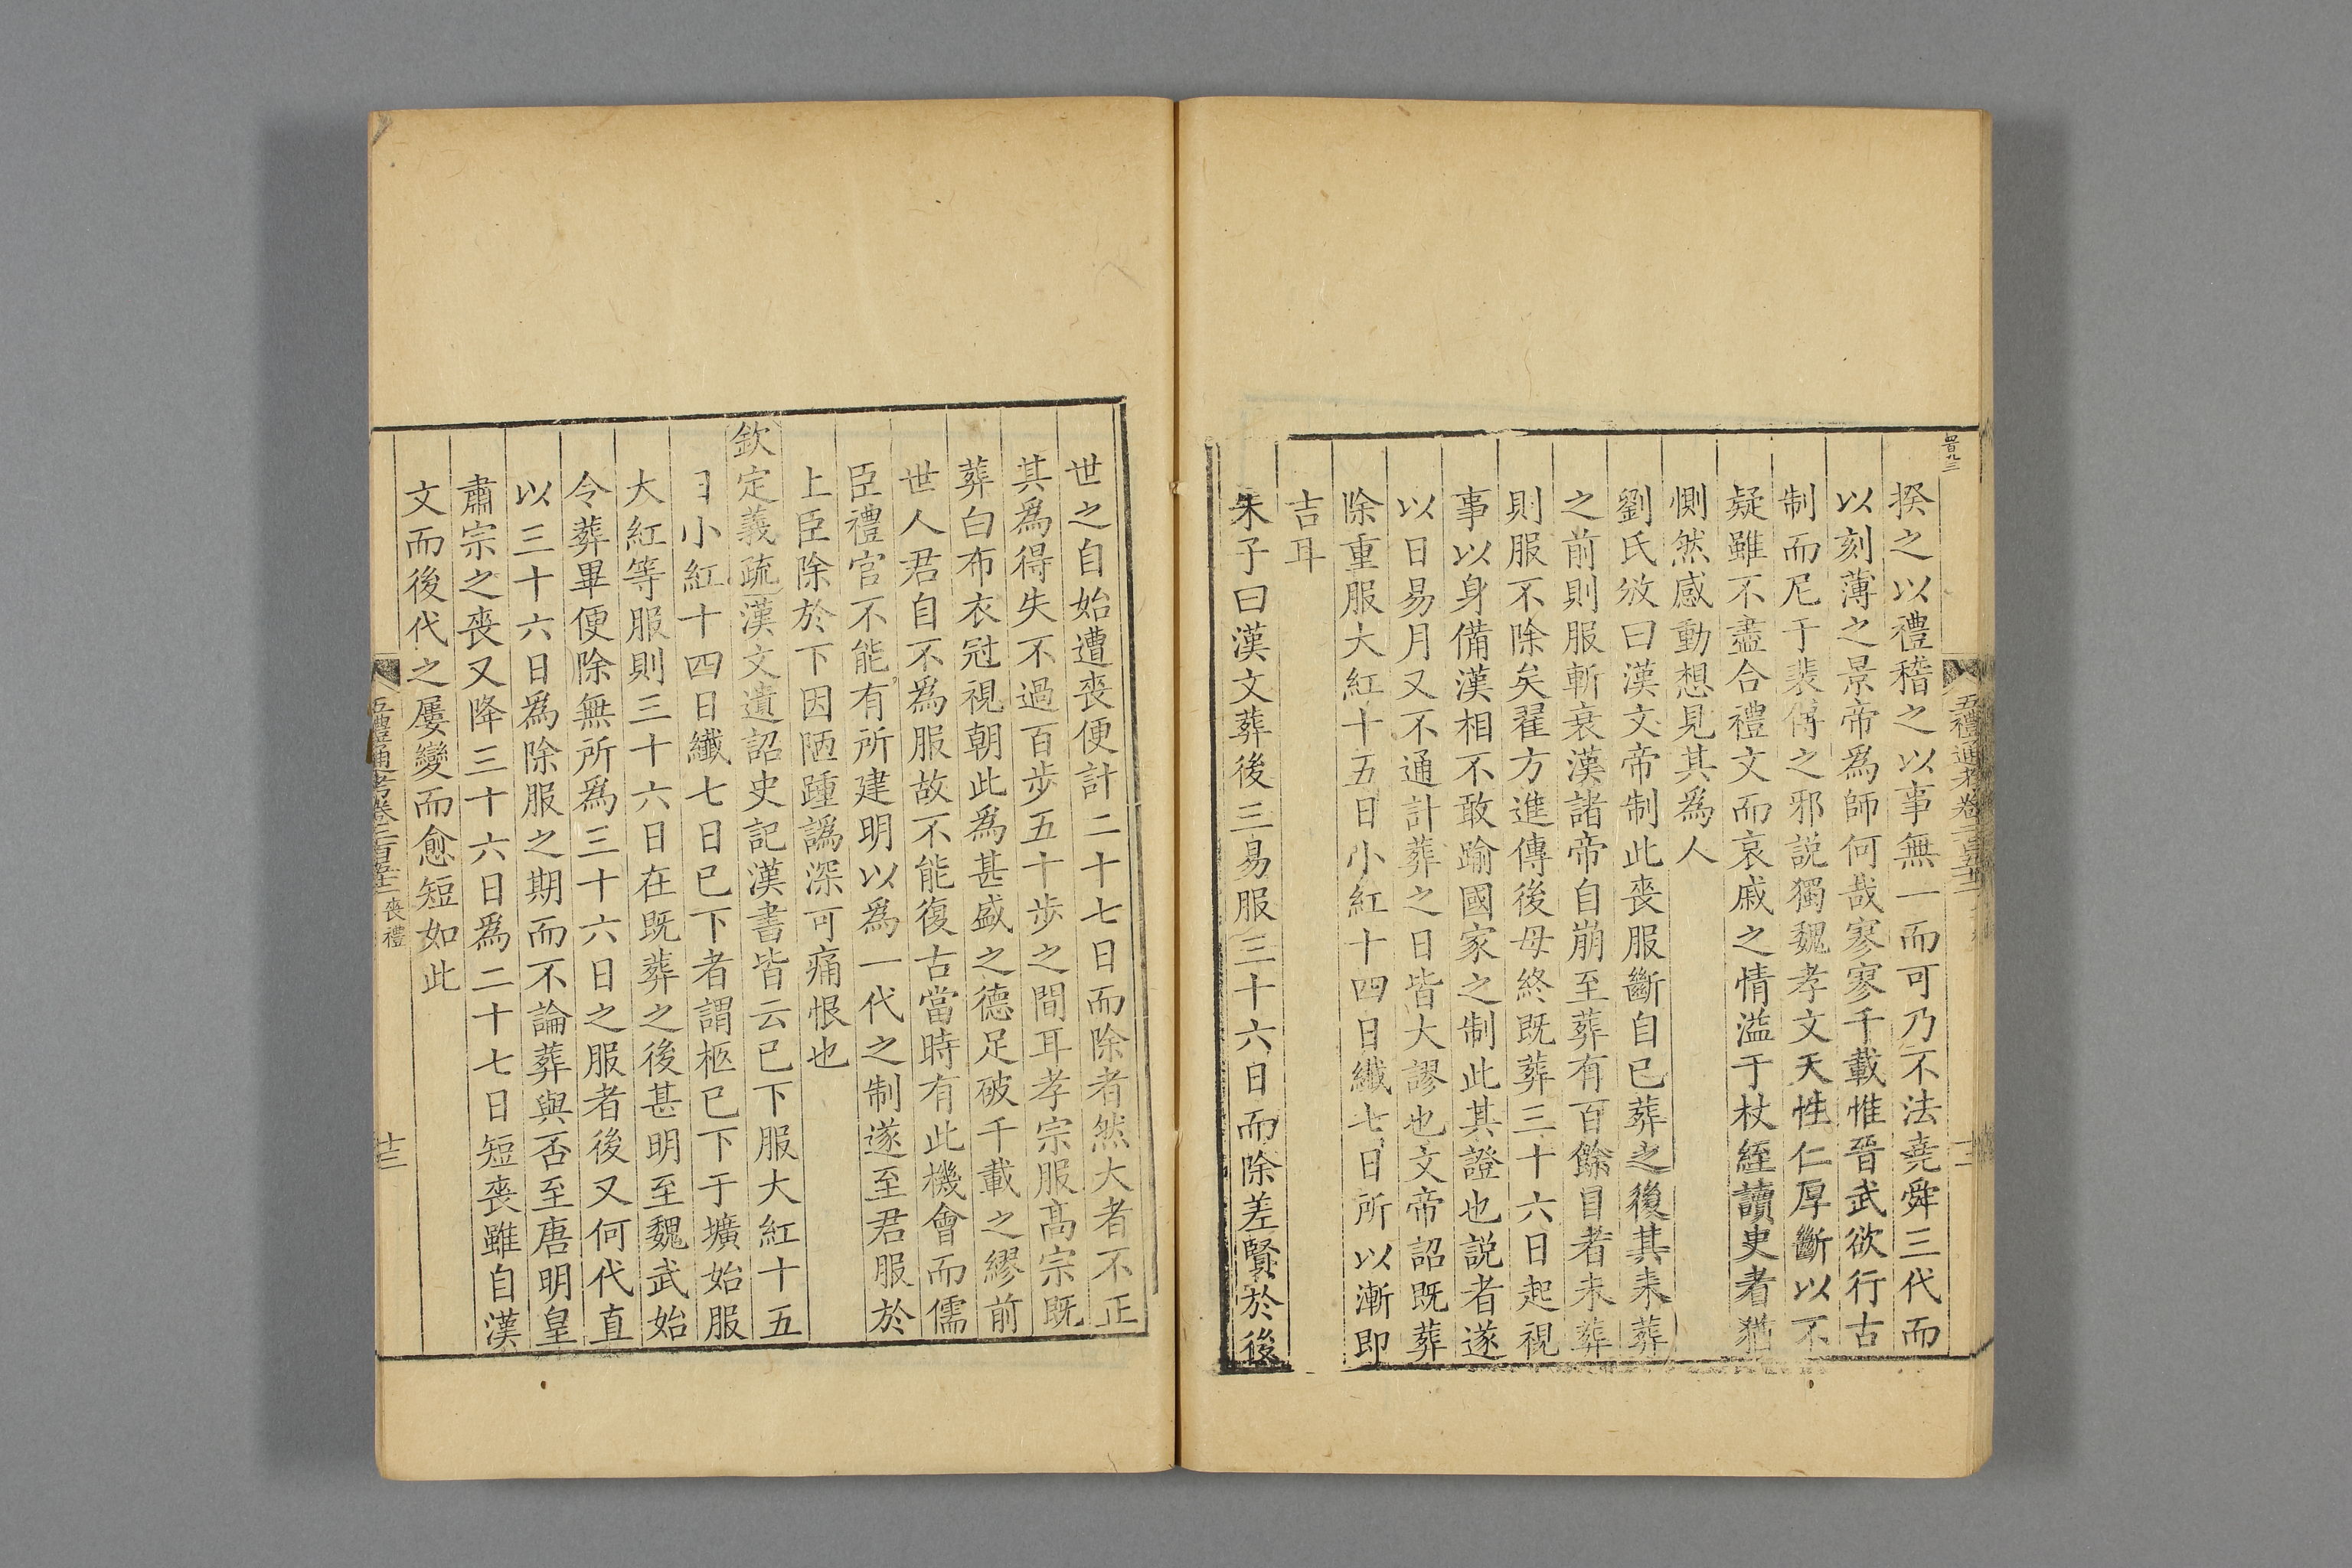 揆之以禮稽之以事無一而可乃不法堯舜三代而
以刻薄之景帝為師何哉寥寥千載惟晉武欲行古
制而尼于裴傅之邪説獨魏孝文天性仁厚斷以不
疑雖不盡合禮文而哀戚之情溢于杖絰讀史者猶
惻然感動想見其為人
劉氏攽曰漢文帝制此喪服斷自已葬之後其未葬
之前則服斬衰漢諸帝自崩至葬有百餘日者未葬
則服不除矣翟方進傳後母終既葬三十六日起視
事以身備漢相不敢踰國家之制此其證也説者遂
以日易月又不通計葬之日皆大謬也文帝詔既葬
除重服大紅十五日小紅十四日纖七日所以漸即
吉耳
朱子曰漢文葬後三易服三十六日而除差賢於後
世之自始遭喪便計二十七日而除者然大者不正
其為得失不過百步五十步之間耳孝宗服髙宗既
葬白布衣冠視朝此為甚盛之德足破千載之繆前
世人君自不為服故不能復古當時有此機會而儒
臣禮官不能有所建明以為一代之制遂至君服於
上臣除於下因陋踵譌深可痛恨也
欽定義疏漢文遺詔史記漢書皆云已下服大紅十五
日小紅十四日纖七日已下者謂柩已下于壙始服
大紅等服則三十六日在既葬之後甚明至魏武始
令葬畢便除無所為三十六日之服者後又何代直
以三十六日為除服之期而不論葬與否至唐明皇
肅宗之喪又降三十六日為二十七日短喪雖自漢
文而後代之屢變而愈短如此
五禮通考卷二百五十二 喪禮
十三